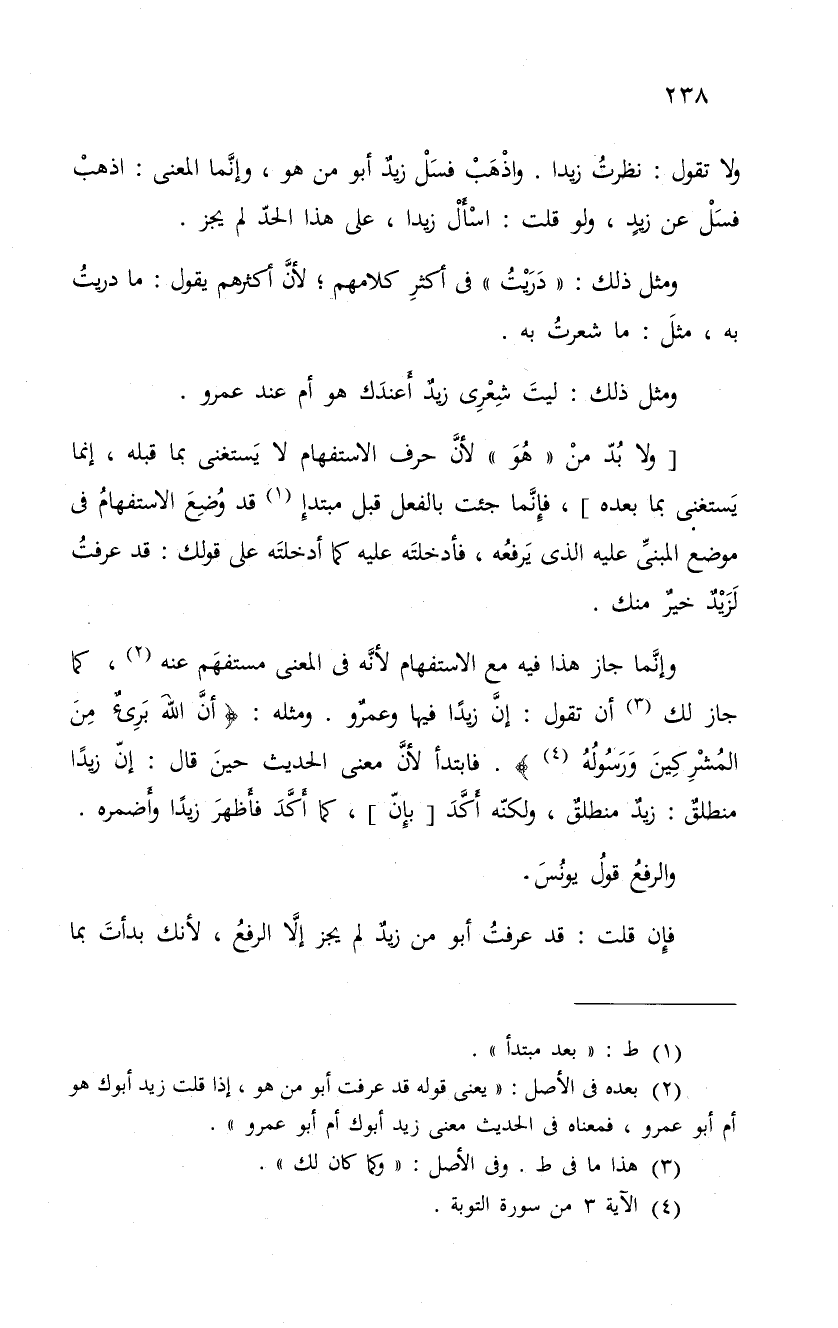 ٢٣٨
ولا تقول : نظرتُ زيدا . واذْهَبْ فسَلْ زيدٌ أبو من هو ، وإنَّما المعنى : اذهبْ
فسَلْ عن زيدٍ ، ولو قلت : اسْأَلْ زيدا ، على هذا الحدّ لم يجز .
ومثل ذلك : « دَرَيْتُ » فى أكثرِ كلامهم ؛ لأنَّ أكثرهم يقول : ما دريتُ
به ، مثلَ : ما شعرتُ به .
ومثل ذلك : ليتَ شِعْرِى زيدٌ أَعندَك هو أم عند عمرو .
[ ولا بُدّ منْ « هُوَ » لأنَّ حرف الاستفهام لا يَستغنى بما قبله ، إنما
يَستغنِى بما بعده ] ، فإِنَّما جئت بالفعل قبل مبتدإِ (١) قد وُضِعَ الاستفهامُ فى
موضع المبنىِّ عليه الذى يَرفعُه ، فأدخلتَه عليه كما أدخلتَه على قولك : قد عرفتُ
لَزَيْدٌ خيرٌ منك .
وإنَّما جاز هذا فيه مع الاستفهام لأنَّه فى المعنى مستفهَم عنه (٢) ، كما
جاز لك (٣) أن تقول : إنَّ زيدًا فيها وعمرٌو . ومثله : ﴿ أَنَّ اللهَ بَرِىءٌ مِنَ
المُشْرِكِينَ وَرَسُولُهُ (٤) ﴾ . فابتدأ لأنَّ معنى الحديث حينَ قال : إنّ زيدًا
منطلقٌ : زيدٌ منطلقٌ ، ولكنّه أَكَّدَ [ بإِنّ ] ، كما أَكَّدَ فأَظهرَ زيدًا وأَضمره .
والرفعُ قولُ يونُسَ .
فإِن قلت : قد عرفتُ أبو من زيدٌ لم يجز إلَّا الرفعُ ، لأنك بدأتَ بما
(١) ط : « بعد مبتدأ » .
(٢) بعده فى الأصل : « يعنى قوله قد عرفت أبو من هو ، إذا قلت زيد أبوك هو
أم أبو عمرو ، فمعناه فى الحديث معنى زيد أبوك أم أبو عمرو » .
(٣) هذا ما فى ط . وفى الأصل : « وكما كان لك » .
(٤) الآية ٣ من سورة التوبة .